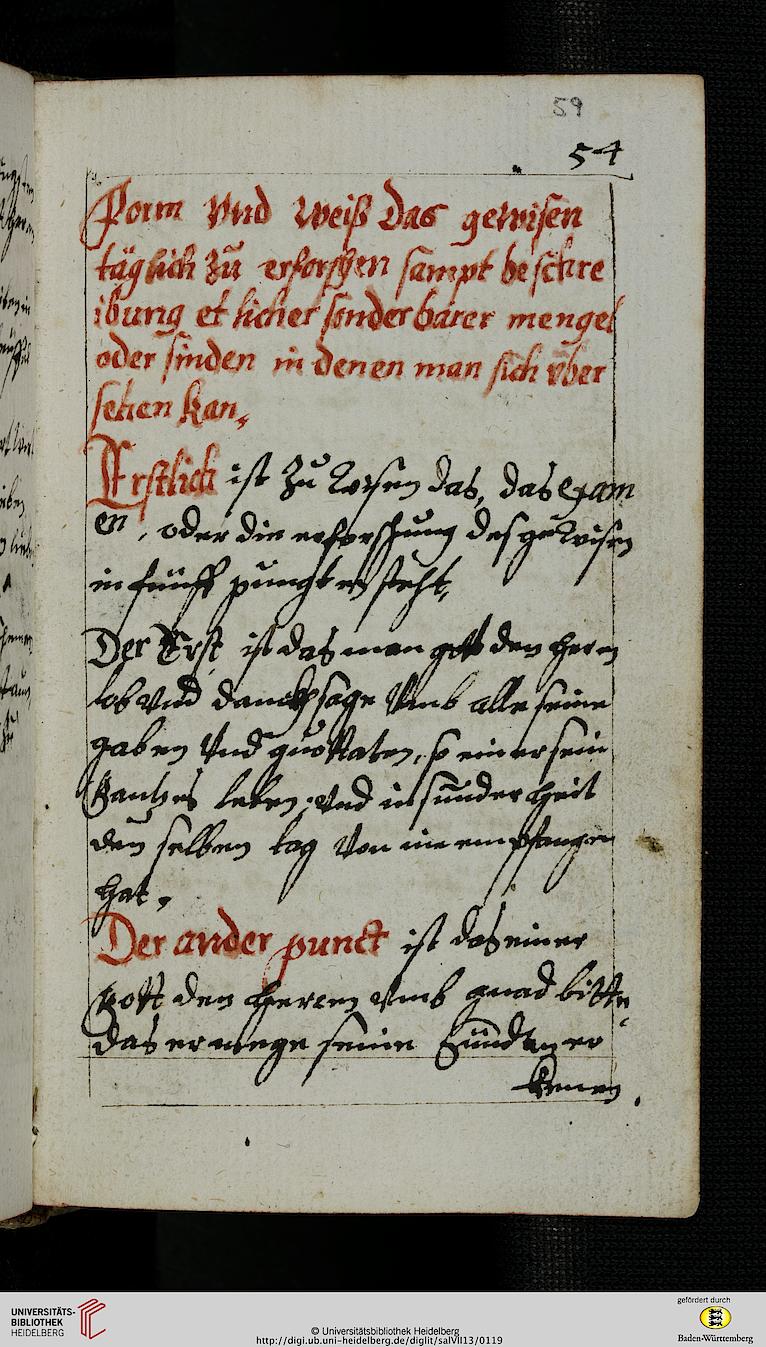 59
54
Form Vnd Weiß das gewisen
täglich zu erforschen sampt beschre
ibung etlicher sonderbarer mengel
oder sinden in denen man sich vber
sehen kan,
Erstlich ist zu wisen das, das exam
en, oder die erforschung des gewisen
in fünff pungten steht,
Der Erst ist das man gott den herrn
lob Vnd danckh sage Vmb alle seine
gaben Vnd guottaten, so einer sein
gantzes leben, Vnd in sunderheit
den selben tag Von im empfangen
hat,
Der ander punct ist das einer
gott den herren vmb gnad bitte,
das er mege seine sünden er
kenen
UNIVERSITÄTS-
BIBLIOTHEK
HEIDELBERG
© Universitätsbibliothek Heidelberg
http://digi.ub.uni-heidelberg.de/diglit/salVII13/0119
gefördert durch
Baden-Württemberg